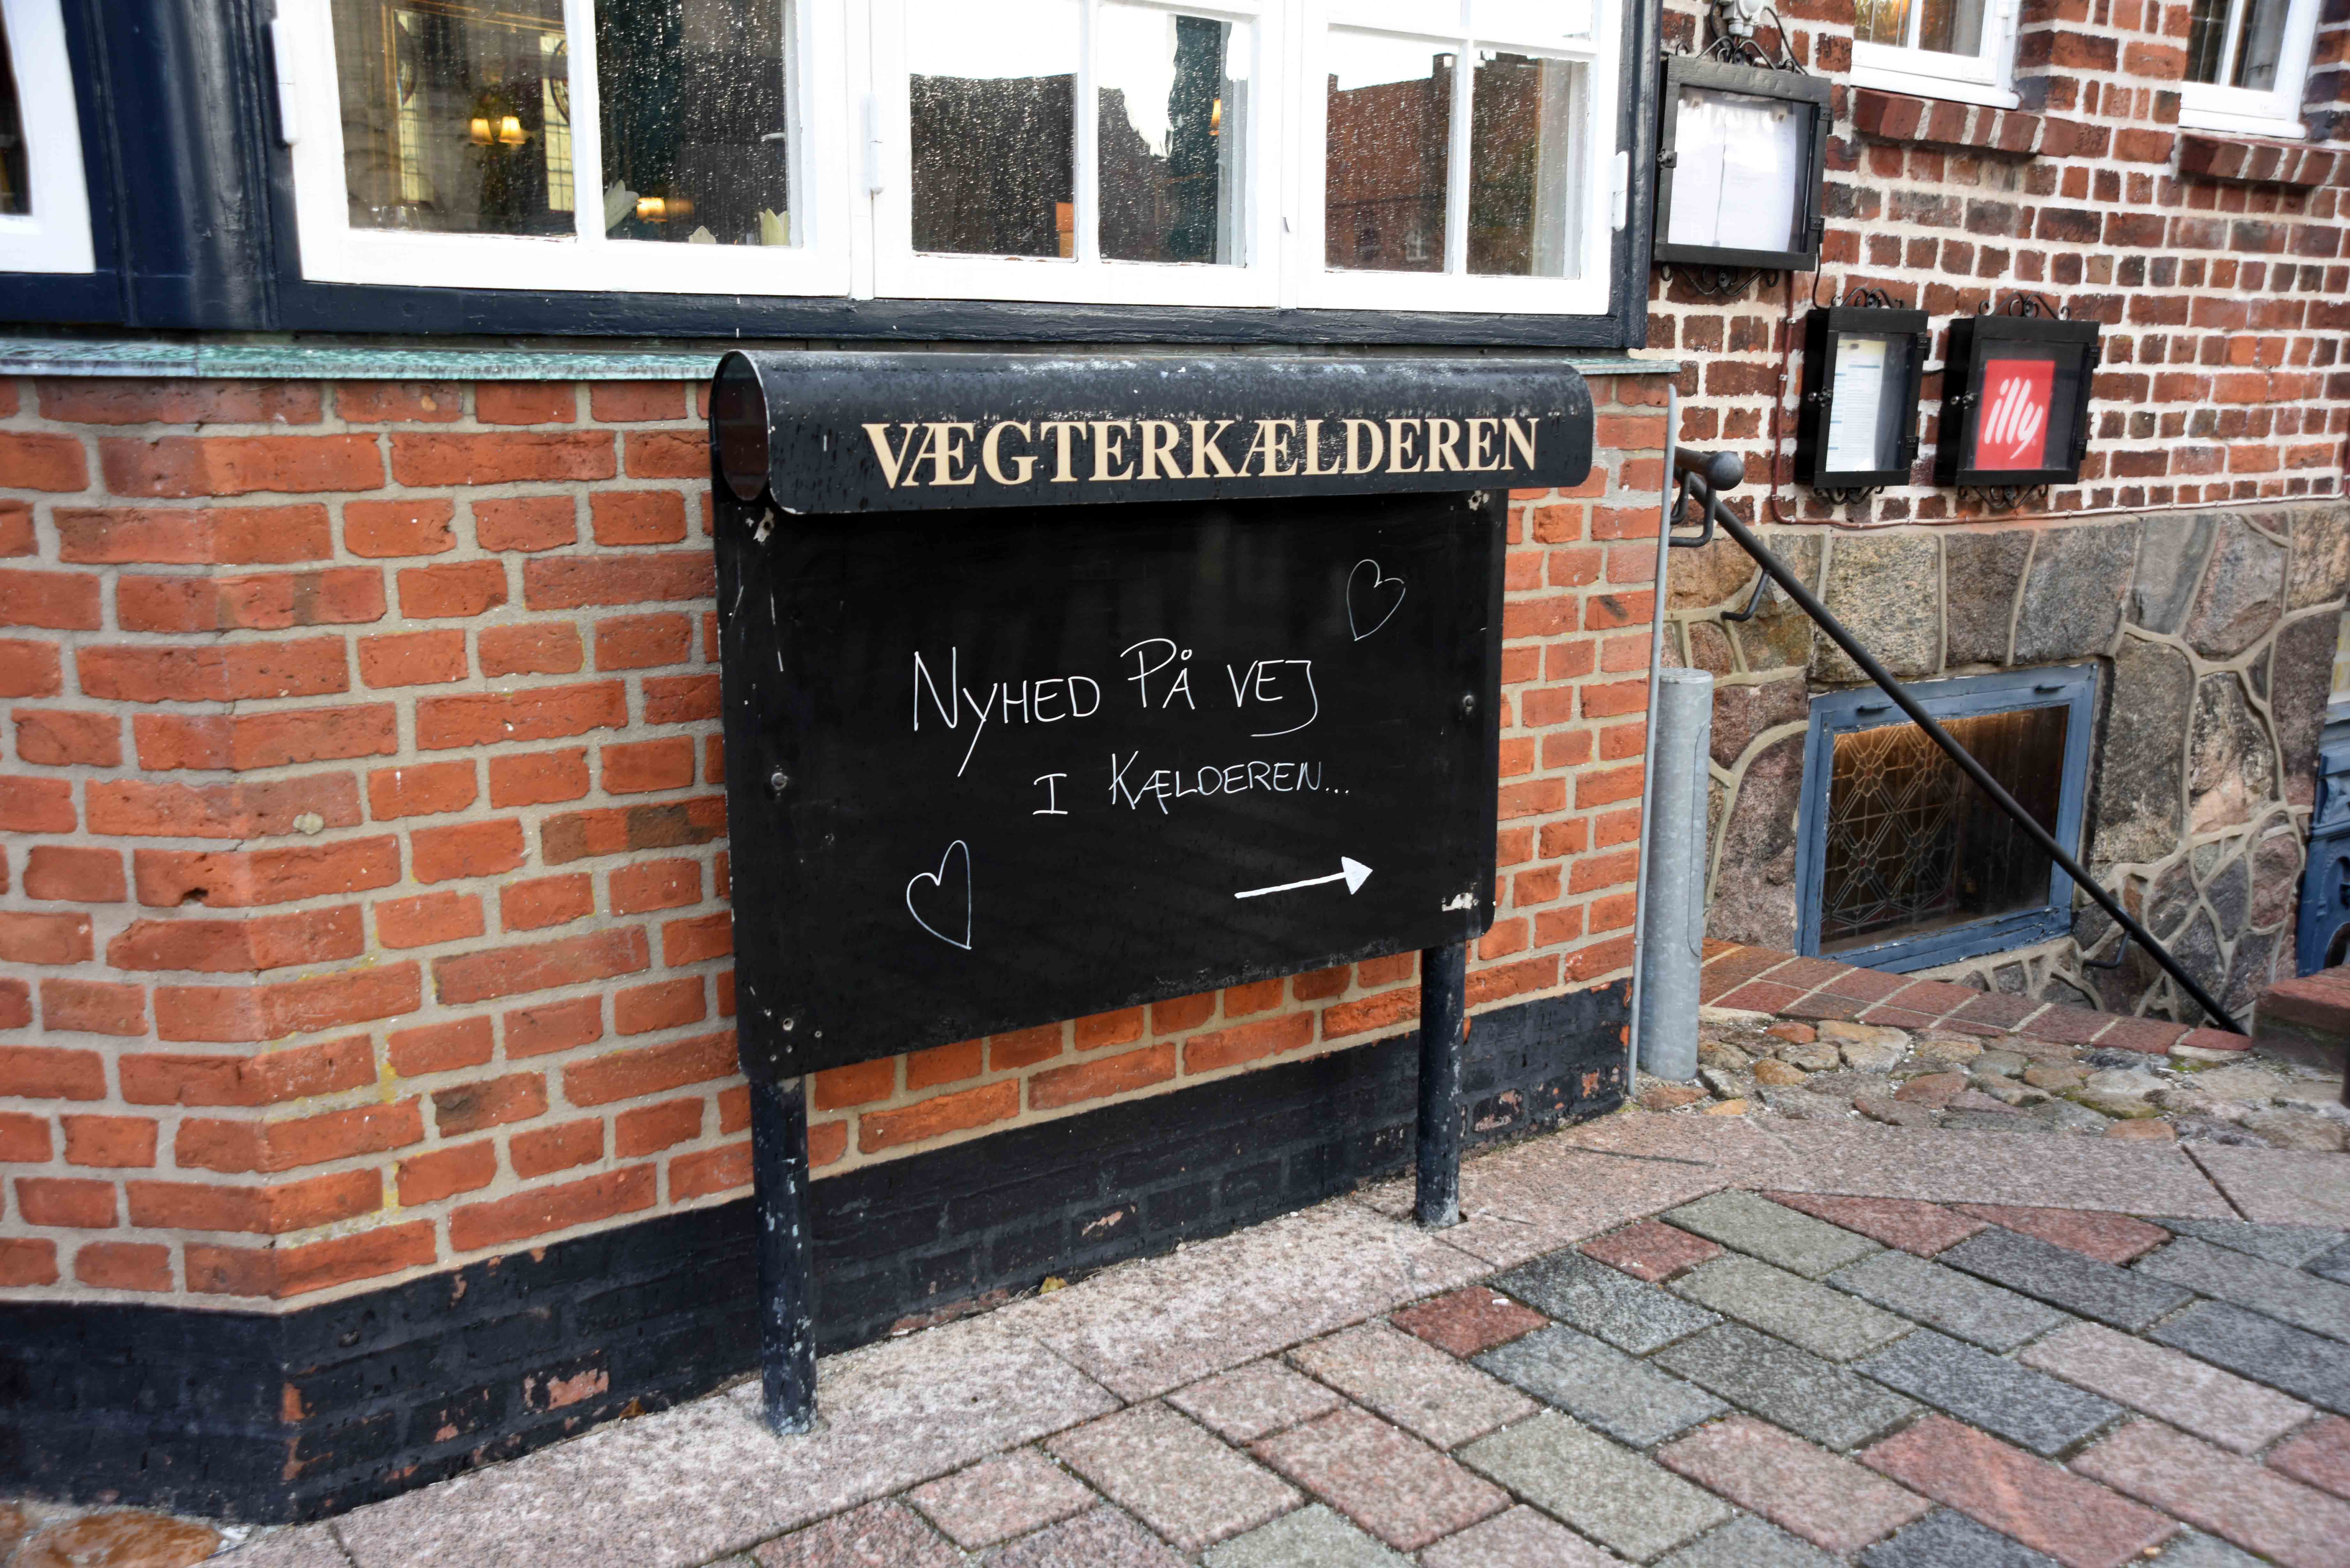 VÆGTERKÆLDEREN
NYHED PÅ VEJ
I KÆLDEREN...
illy